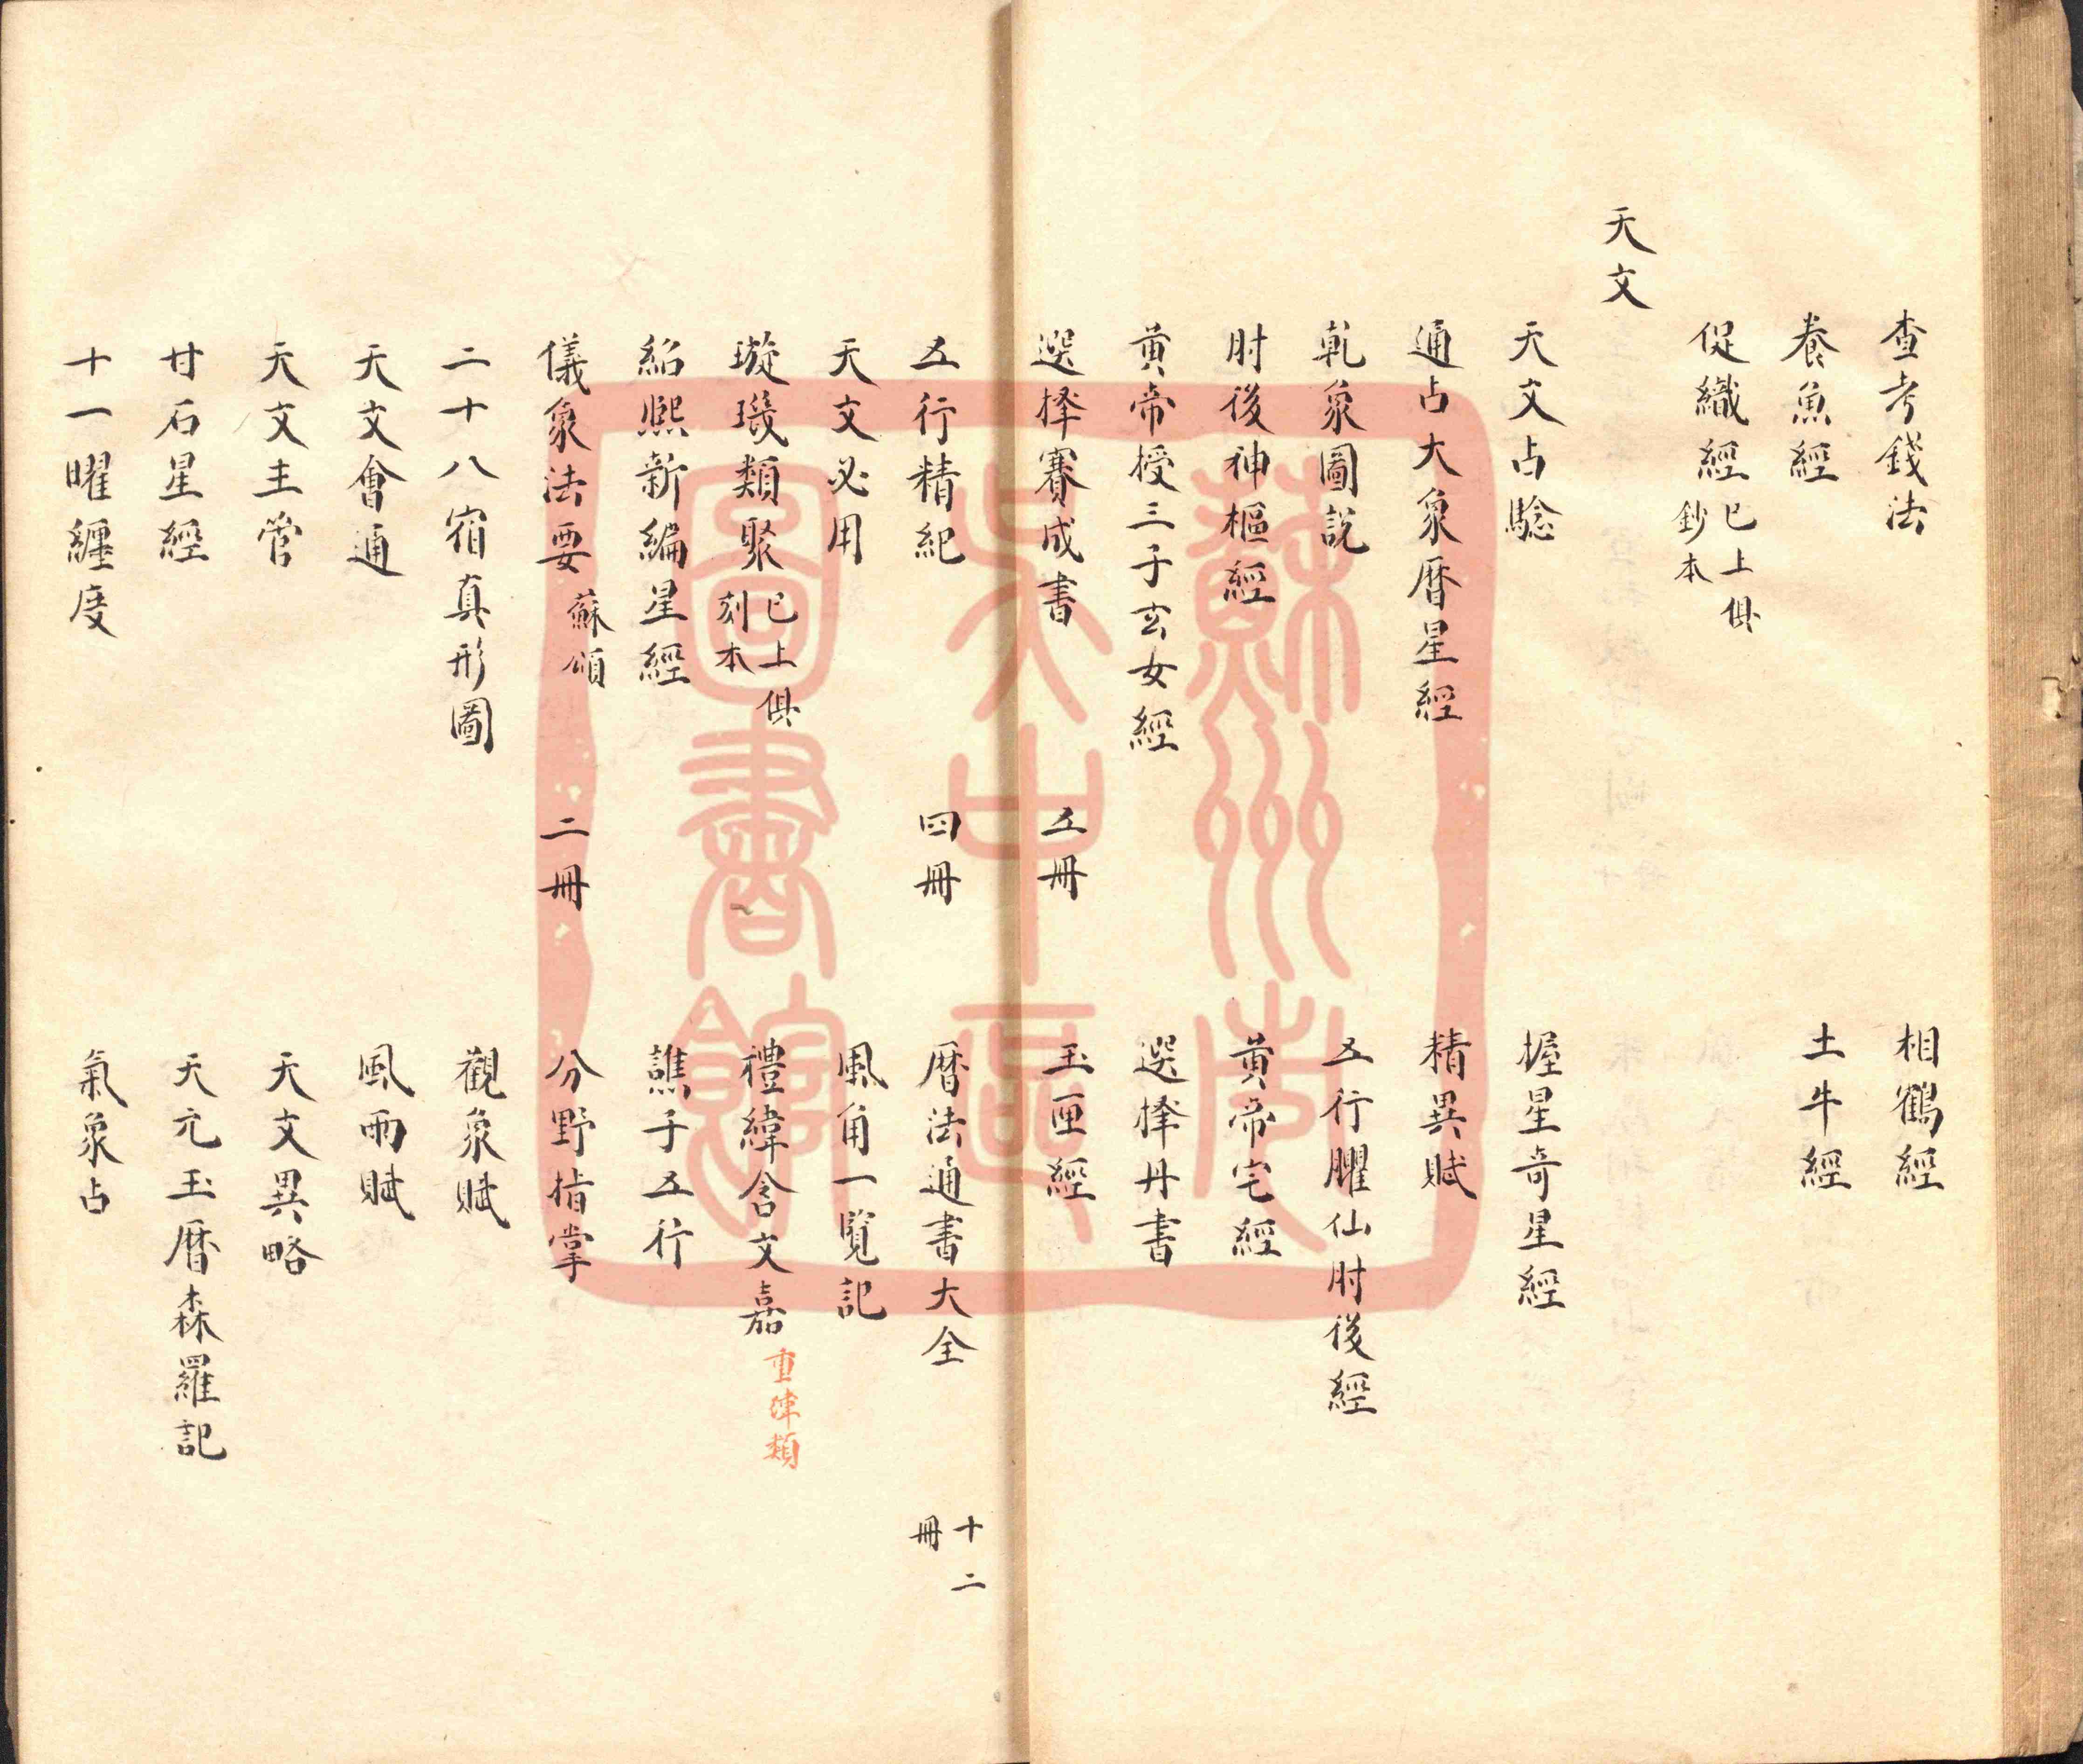 查考錢法 相鶴經
養魚經 土牛經
促織經 已上俱鈔本
天文
天文占驗 握星奇星經
通占大象曆星經 精異賦
乾象圖說 五行臞仙肘後經
肘後神樞經 黃帝宅經
黃帝授三子玄女經 選擇丹書
選擇賽成書 五冊 玉匣經
五行精紀 四冊 曆法通書大全 十二冊
天文必用 風角一覽記
璇璣類聚 已上俱刻本 禮緯含文嘉 重緯類
紹熙新編星經 譙子五行
儀象法要 蘇頌 二冊 分野指掌
二十八宿真形圖 觀象賦
天文會通 風雨賦
天文主管 天文異略
甘石星經 天元玉曆森羅記
十一曜纏度 氣象占
蘇州市
吳中區
圖書館